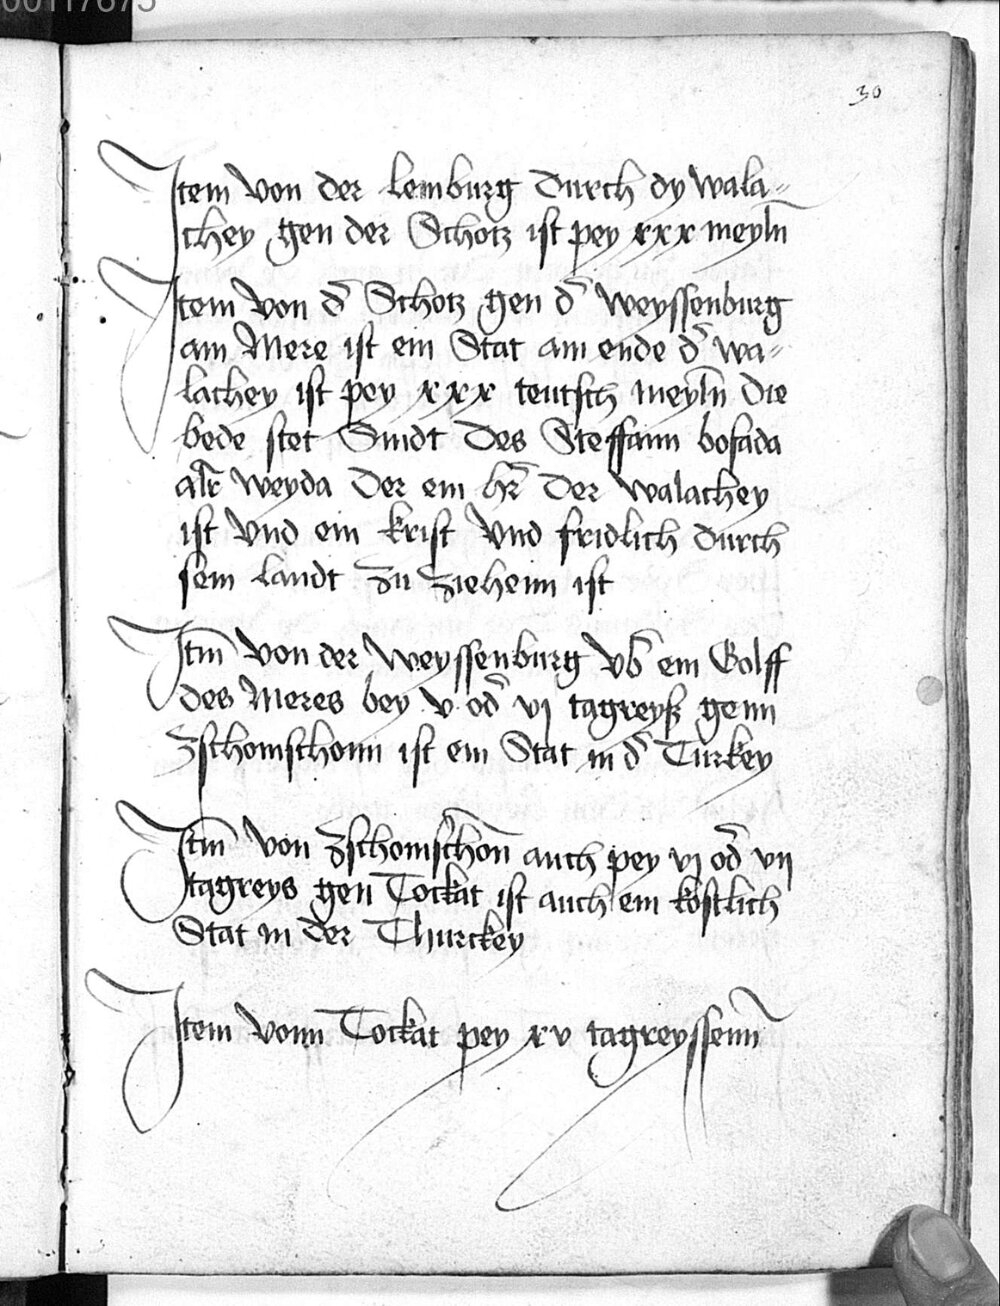 00117675
30
Item von der Lemburg durch dy wala-
chey gen der Schotz ist pey xxx meyln
Item von d̄ Schotz gen d̄ weyssenburg
am Mere ist ein Stat am ende d̄ wa-
lachey ist pey xxx teutsch meyln die
bede stet Sindt des Steffann bosada
weyda der ein hr̄ der walachey
ist vnd ein krist vnd fridlich durch
sein landt zu ziehenn ist
Itm̄ von der weyssenburg vb̄ ein Golff
des Meres bey v od̄ vj tagreyß genn
zschomschonn ist ein Stat in d̄ Turkey
Itm̄ von zschomschon̄ auch pey vj od̄ vij
tagreys gen Tockat ist auch ein kostlich
Stat in der Thurckey
Item vonn Tockat pey xv tagreyssenn